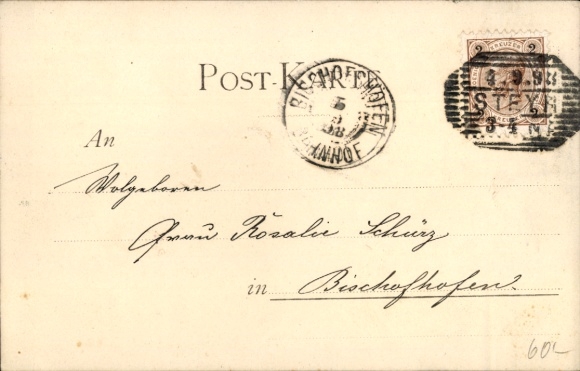 2 KREUZER 2
4.9.98
STEYR
3-4 N
POST-KARTE
BISCHOFSHOFEN
5
9
98
BAHNHOF
An
Wolgeboren
Frau Rosalie Schürz
in Bischofhofen
60-